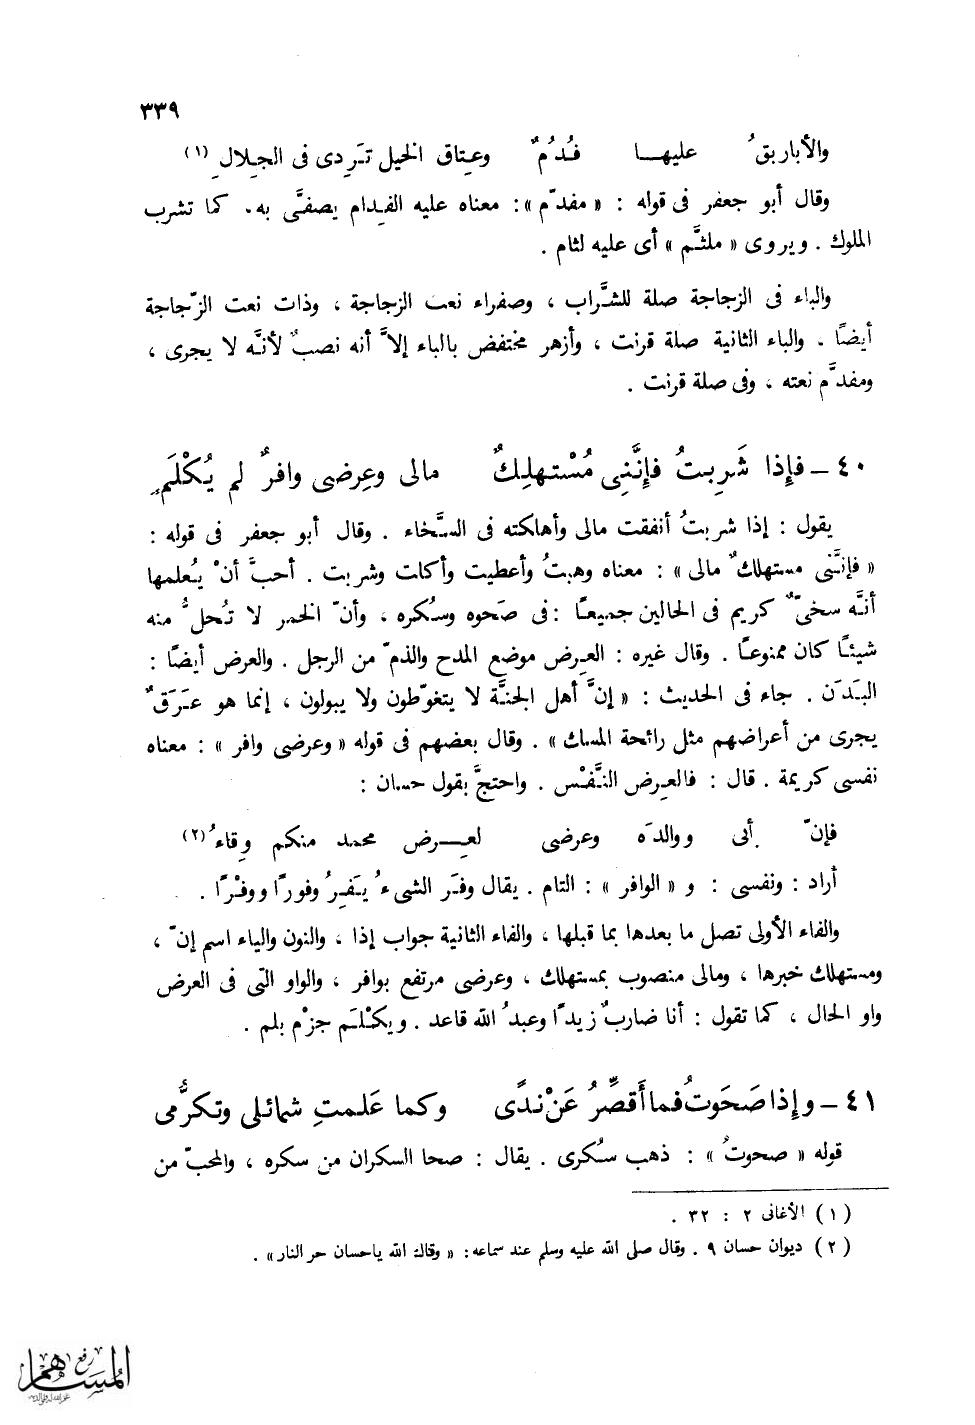 ٣٣٩
والأباريقُ عليهـا فُدُمٌ وعِتاق الخيل تَرِدى فى الجِلالِ (١)
وقال أبو جعفر فى قوله : « مفدّم » : معناه عليه الفِدام يصفَّى به. كما تشرب
الملوك . ويروى « ملثَّم » أى عليه لثام .
والباء فى الزجاجة صلة للشَّراب ، وصفراء نعت الزجاجة ، وذات نعت الزّجاجة
أيضًا . والباء الثانية صلة قرنت ، وأزهر مختفض بالباء إلاَّ أنه نصبٌ لأنَّه لا يجرى ،
ومفدَّم نعته ، وفى صلة قرنت .
٤٠ – فإِذا شَرِبتُ فإِنَّنِى مُسْتهلِكٌ مالى وعِرضى وافرٌ لم يُكْلَمِ
يقول : إذا شربتُ أنفقت مالى وأهلكته فى السَّخاء . وقال أبو جعفر فى قوله :
« فإنَّنى مستهلكٌ مالى » : معناه وهبتُ وأعطيت وأكلت وشربت . أحبَّ أنْ يُعلمها
أنَّه سخىٌّ كريم فى الحالين جميعًا : فى صَحوه وسُكره ، وأنّ الخمر لا تُحلُّ منه
شيئًا كان ممنوعًا . وقال غيره : العِرض موضع المدح والذمّ من الرجل . والعرض أيضًا :
البَدَن . جاء فى الحديث : « إنَّ أهل الجنَّة لا يتغوّطون ولا يبولون ، إنما هو عَرَقٌ
يجرى من أعراضهم مثل رائحة المسك » . وقال بعضهم فى قوله « وعرضى وافر » : معناه
نفسى كريمة . قال : فالعِرض النَّفْس . واحتجَّ بقول حسان :
فإنّ أبى ووالدَه وعرضى لعِـرض محمد منكم وِقاءُ (٢)
أراد : ونفسى : و « الوافر » : التام . يقال وفَر الشىءُ يَفِرُ وفورًا ووفْرًا .
والفاء الأولى تصل ما بعدها بما قبلها ، والفاء الثانية جواب إذا ، والنون والياء اسم إنّ ،
ومستهلك خبرها ، ومالى منصوب بمستهلك ، وعرضى مرتفع بوافر ، والواو التى فى العرض
واو الحال ، كما تقول : أنا ضاربٌ زيدًا وعبدُ الله قاعد . ويكْلَم جزْم بلم .
٤١ – وإِذا صَحَوتُ فما أُقصِّرُ عَنْ نَدًى وكما عَلمتِ شمائلى وتكرُّمى
قوله « صحوتُ » : ذهب سُكرى . يقال : صحا السكران من سكره ، والمحبّ من
(١) الأغانى ٢ : ٣٢ .
(٢) ديوان حسان ٩ . وقال صلى الله عليه وسلم عند سماعه: « وقاك الله ياحسان حر النار» .